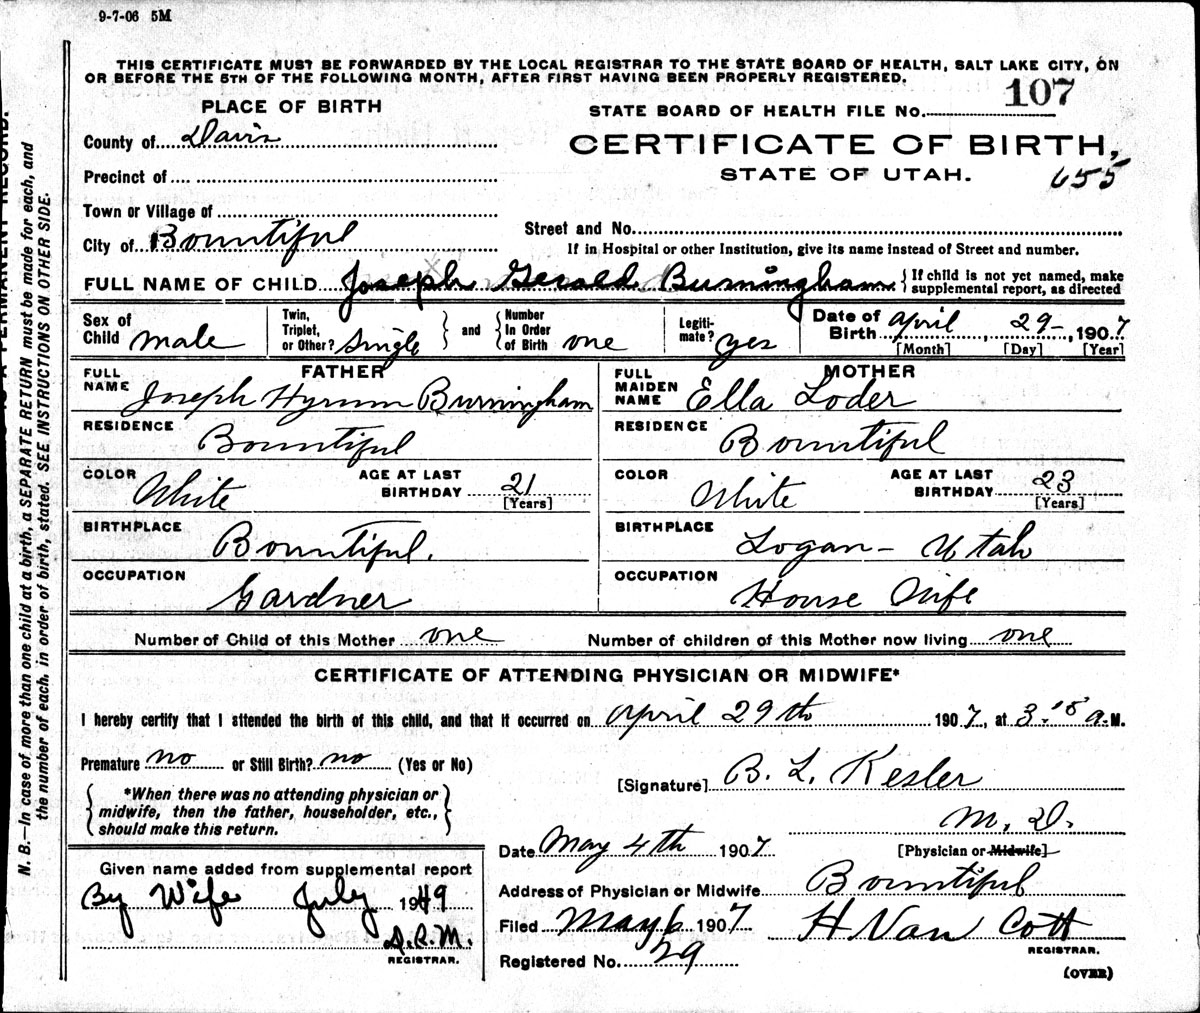 9-7-06 5M
THIS CERTIFICATE MUST BE FORWARDED BY THE LOCAL REGISTRAR TO THE STATE BOARD OF HEALTH, SALT LAKE CITY, ON
OR BEFORE THE 5TH OF THE FOLLOWING MONTH, AFTER FIRST HAVING BEEN PROPERLY REGISTERED.
PLACE OF BIRTH
STATE BOARD OF HEALTH FILE No. 107
County of Davis
CERTIFICATE OF BIRTH,
Precinct of
STATE OF UTAH. 655
Town or Village of
Street and No.
City of Bountiful
If in Hospital or other Institution, give its name instead of Street and number.
FULL NAME OF CHILD Joseph Gerald Burningham {If child is not yet named, make
supplemental report, as directed
Sex of
Child male
Twin,
Triplet,
or Other? Single
and
Number
In Order
of Birth one
Legiti-
mate? yes
Date of
Birth April 29-, 1907
[Month] [Day] [Year]
FATHER
FULL
NAME Joseph Hyrum Burningham
RESIDENCE Bountiful
COLOR White
AGE AT LAST
BIRTHDAY 21
[Years]
BIRTHPLACE Bountiful.
OCCUPATION Gardner
MOTHER
FULL
MAIDEN
NAME Ella Loder
RESIDENCE Bountiful
COLOR White
AGE AT LAST
BIRTHDAY 23
[Years]
BIRTHPLACE Logan - Utah
OCCUPATION House Wife
Number of Child of this Mother one Number of children of this Mother now living one
CERTIFICATE OF ATTENDING PHYSICIAN OR MIDWIFE*
I hereby certify that I attended the birth of this child, and that it occurred on April 29th 1907, at 3.15 a.M.
Premature no or Still Birth? no (Yes or No)
[Signature] B. L. Kesler
*When there was no attending physician or
midwife, then the father, householder, etc.,
should make this return.
M. D.
[Physician or Midwife]
Date May 4th 1907
Address of Physician or Midwife Bountiful
Filed May 6 1907 H Van Cott
REGISTRAR.
Registered No. 29
(OVER)
Given name added from supplemental report
By Wife July 1949
D.R.M.
REGISTRAR.
N. B.—In case of more than one child at a birth, a SEPARATE RETURN must be made for each, and
the number of each, in order of birth, stated. SEE INSTRUCTIONS ON OTHER SIDE.
A PERMANENT RECORD.